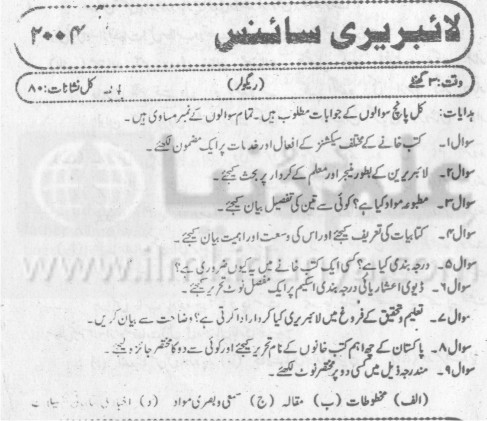 لائبریری سائنس ۲۰۰۴
وقت: ۳ گھنٹے (ریگولر) کل نشانات: ۸۰
ہدایات: کل پانچ سوالوں کے جوابات مطلوب ہیں۔ تمام سوالوں کے نمبر مساوی ہیں۔
سوال۱۔ کتب خانے کے مختلف سیکشنز کے افعال اور خدمات پر ایک مضمون لکھئے۔
سوال۲۔ لائبریرین کے بطور منیجر اور معلم کے کردار پر بحث کیجئے۔
سوال۳۔ مطبوعہ مواد کیا ہے؟ کوئی سے تین کی تفصیل بیان کیجئے۔
سوال۴۔ کتابیات کی تعریف کیجئے اور اس کی وسعت اور اہمیت بیان کیجئے۔
سوال۵۔ درجہ بندی کیا ہے؟ کسی ایک کتب خانے میں یہ کیوں ضروری ہے؟
سوال۶۔ ڈیوی اعشاریائی درجہ بندی اسکیم پر ایک مفصل نوٹ تحریر کیجئے۔
سوال۷۔ تعلیم و تحقیق کے فروغ میں لائبریری کیا کردار ادا کرتی ہے؟ وضاحت سے بیان کریں۔
سوال۸۔ پاکستان کے چھ اہم کتب خانوں کے نام تحریر کیجئے اور کوئی سے دو کا مختصر جائزہ لیجئے۔
سوال۹۔ مندرجہ ذیل میں کسی دو پر مختصر نوٹ لکھئے۔
(الف) مخطوطات (ب) مقالہ (ج) سمعی و بصری مواد (د) اخباری